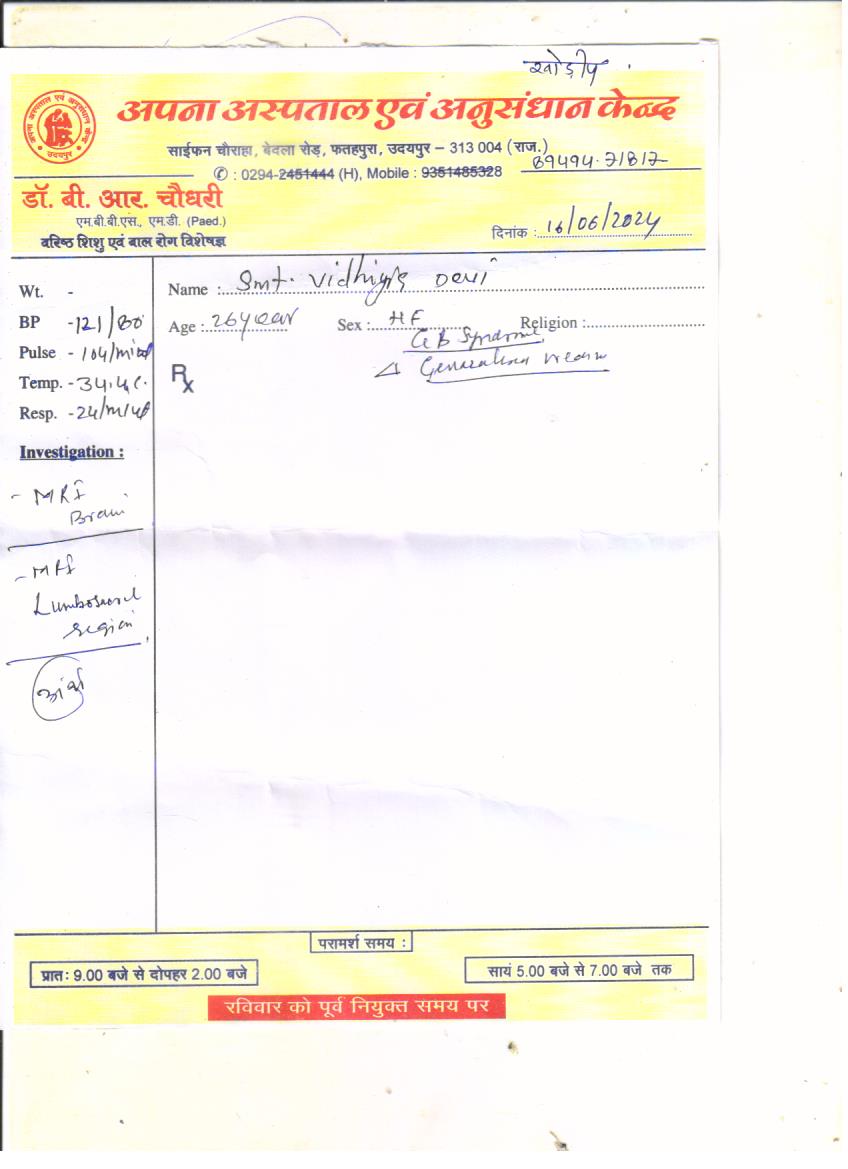 खोड़ीप
अपना अस्पताल एवं अनुसंधान केन्द्र
उदयपुर
अपना अस्पताल एवं अनुसंधान केन्द्र
साईफन चौराहा, बेदला रोड़, फतहपुरा, उदयपुर – 313 004 (राज.)
✆ : 0294-2451444 (H), Mobile : 9351485328
89494-71817
डॉ. बी. आर. चौधरी
एम.बी.बी.एस., एम.डी. (Paed.)
वरिष्ठ शिशु एवं बाल रोग विशेषज्ञ
दिनांक : 16/06/2024
Wt. -
BP - 121/80
Pulse - 104/
Temp. - 34.4c.
Resp. - 24/
Investigation :
- MRI
Brain
- MRI
Lumbosacral
region
Name : Smt. Devi
Age : 26 year Sex : Religion :
GB Syndrome
Rx
परामर्श समय :
प्रातः 9.00 बजे से दोपहर 2.00 बजे
सायं 5.00 बजे से 7.00 बजे तक
रविवार को पूर्व नियुक्त समय पर